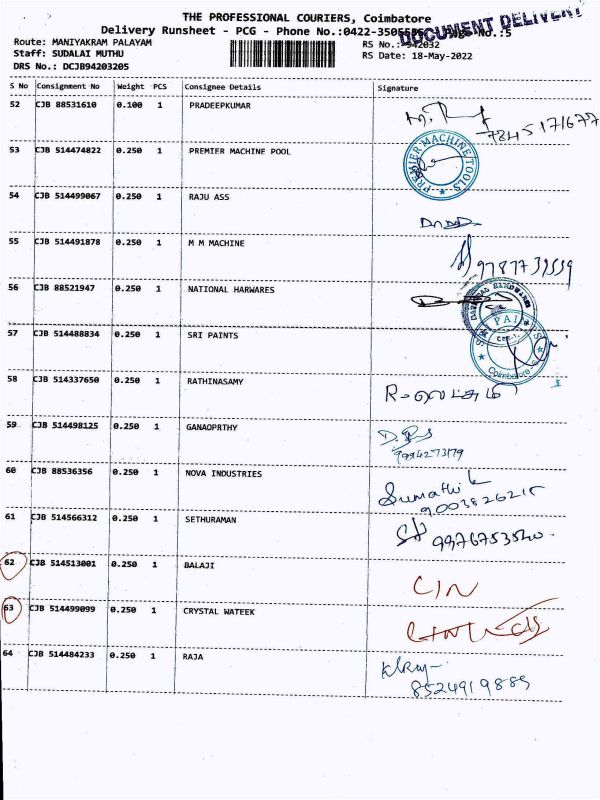 THE PROFESSIONAL COURIERS, Coimbatore
DOCUMENT DELIVERY
Delivery Runsheet - PCG - Phone No.:0422-3505555 Page No.:5
Route: MANIYAKRAM PALAYAM
RS No.: 942032
Staff: SUDALAI MUTHU
RS Date: 18-May-2022
DRS No.: DCJB94203205
S No Consignment No Weight PCS Consignee Details Signature
52 CJB 88531610 0.100 1 PRADEEPKUMAR
7845171677
53 CJB 514474822 0.250 1 PREMIER MACHINE POOL
PREMIER MACHINE TOOLS
54 CJB 514499067 0.250 1 RAJU ASS
55 CJB 514491878 0.250 1 M M MACHINE
9787739559
56 CJB 88521947 0.250 1 NATIONAL HARWARES
57 CJB 514488834 0.250 1 SRI PAINTS
Coimbatore
58 CJB 514337650 0.250 1 RATHINASAMY
59 CJB 514498125 0.250 1 GANAOPRTHY
60 CJB 88536356 0.250 1 NOVA INDUSTRIES
Sumathi k
9003826215
61 CJB 514566312 0.250 1 SETHURAMAN
9976753540
62 CJB 514513001 0.250 1 BALAJI
CIN
63 CJB 514499099 0.250 1 CRYSTAL WATEEK
64 CJB 514484233 0.250 1 RAJA
8524919889